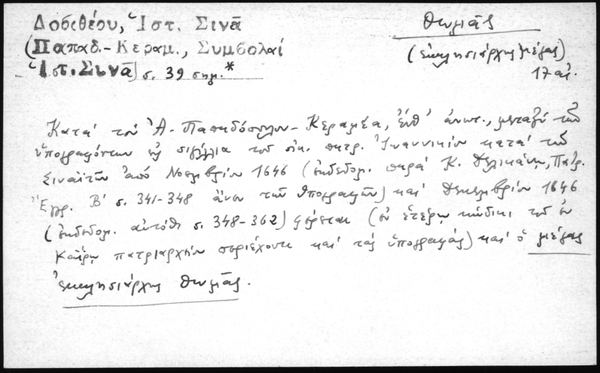 Δοσιθέου, Ἱστ. Σινᾶ
(Παπαδ.-Κεραμ., Συμβολαί
Ἱστ. Σινᾶ) σ. 39 σημ.*
Θωμᾶς
(ἐκκλησιάρχης μέγας)
17 αἰ.
Κατά τόν Ἀ. Παπαδόπουλον - Κεραμέα, ἔνθ' ἀνωτ., μεταξύ τῶν
ὑπογραφόντων σιγίλλια τοῦ οἰκ. πατρ. Ἰωαννικίου κατά τῶν
Σιναϊτῶν ἀπό Νοεμβρίου 1646 (ἐκδεδομ. παρά Κ. Δελικάνῃ, Πατρ.
Ἔγγρ. Β' σ. 341-348 ἄνευ τῶν ὑπογραφῶν) καί Δεκεμβρίου 1646
(ἐκδεδομ. αὐτόθι σ. 348-362) φέρεται (ἐν ἑτέρῳ κώδικι τοῦ ἐν
Καΐρῳ πατριαρχείου περιέχοντι καί τάς ὑπογραφάς) καί ὁ μέγας
ἐκκλησιάρχης Θωμᾶς.